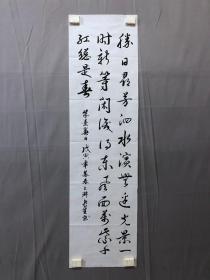 勝日尋芳泗水濱無邊光景一
時新等閑識得東風面萬紫千
紅總是春
朱熹春日 戊寅年